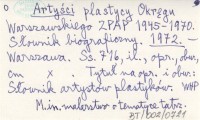 Artyści plastycy Okręgu
Warszawskiego ZPAP 1945-1970.
Słownik biograficzny. 1972. -
Warszawa. Ss. 776, il., opr., obw.,
cm x . Tytuł na opr. i obw.:
Słownik artystów plastyków. WHP
M.in. malarstwo o tematyce tatrz.
BJ/002/0721